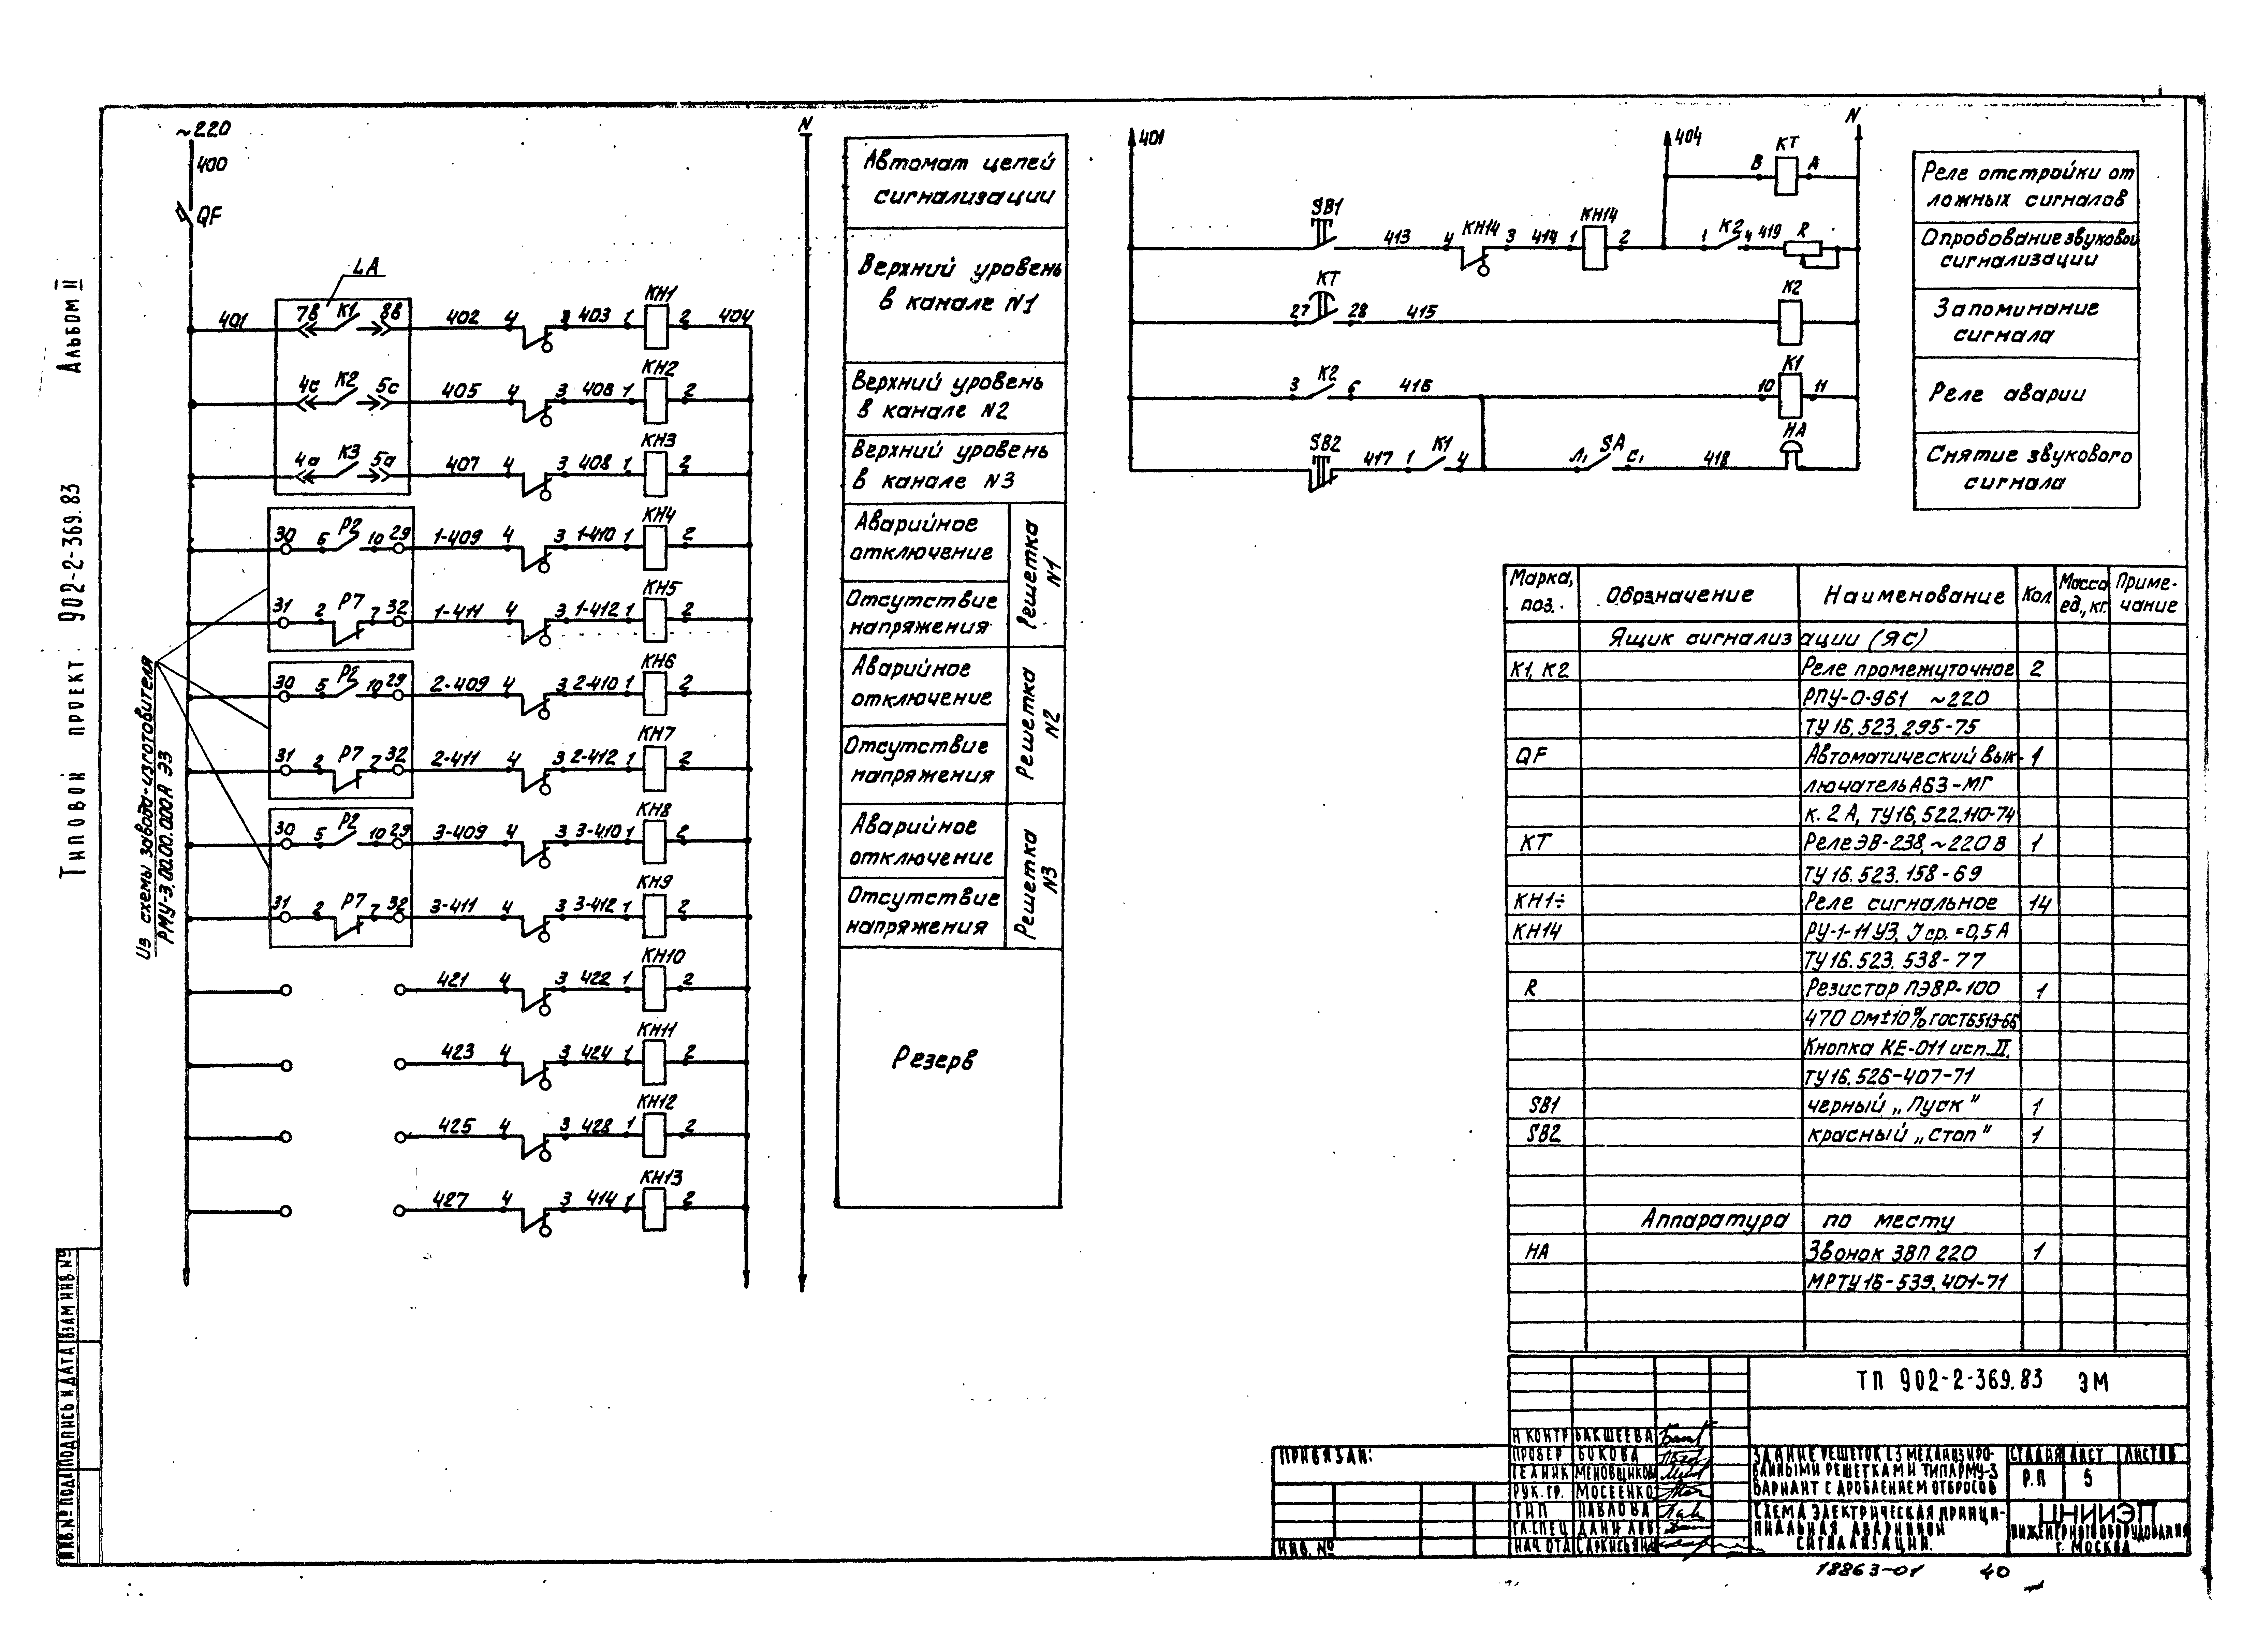 Альбом II
Типовой проект 902-2-369.83
~220
400
QF
4А
N
401 7в К1 8в 402 4 3 403 1 КН1 2 404
4с К2 5с 405 4 3 408 1 КН2 2
4а К3 5а 407 4 3 408 1 КН3 2
30 5 Р2 10 29 1-409 4 3 1-410 1 КН4 2
31 2 Р7 7 32 1-411 4 3 1-412 1 КН5 2
30 5 Р2 10 29 2-409 4 3 2-410 1 КН6 2
31 2 Р7 7 32 2-411 4 3 2-412 1 КН7 2
30 5 Р2 10 29 3-409 4 3 3-410 1 КН8 2
31 2 Р7 7 32 3-411 4 3 3-412 1 КН9 2
421 4 3 422 1 КН10 2
423 4 3 424 1 КН11 2
425 4 3 428 1 КН12 2
427 4 3 414 1 КН13 2
Из схемы завода-изготовителя
РМУ-3.00.00.000А Э3
Автомат цепей
сигнализации
Верхний уровень
в канале N1
Верхний уровень
в канале N2
Верхний уровень
в канале N3
Аварийное
отключение
Отсутствие
напряжения
Решетка
N1
Аварийное
отключение
Отсутствие
напряжения
Решетка
N2
Аварийное
отключение
Отсутствие
напряжения
Решетка
N3
Резерв
401
404
N
В КТ А
SB1 413 4 КН14 3 414 1 КН14 2 1 К2 4 419 R
КТ 27 28 415 К2
3 К2 6 416 10 К1 11
SB2 417 1 К1 4 Л1 SA С1 418 НА
Реле отстройки от
ложных сигналов
Опробование звуковой
сигнализации
Запоминание
сигнала
Реле аварии
Снятие звукового
сигнала
Марка, поз. Обозначение Наименование Кол Масса ед., кг. Приме-чание
Ящик сигнализации (ЯС)
К1, К2 Реле промежуточное 2
РПУ-0-961 ~220
ТУ 16.523.295-75
QF Автоматический вык- 1
лючатель А63-МГ
к. 2 А, ТУ16.522.110-74
КТ Реле ЭВ-238, ~220 в 1
ТУ 16.523.158-69
КН1÷ Реле сигнальное 14
КН14 РУ-1-11 У3, Jср.=0,5 А
ТУ 16.523.538-77
R Резистор ПЭВР-100 1
470 Ом±10% ГОСТ6513-66
Кнопка КЕ-011 исп. II,
ТУ 16.526-407-71
SB1 черный „Пуск" 1
SB2 красный „Стоп" 1
Аппаратура по месту
НА Звонок ЗВП 220 1
МРТУ16-539.401-71
ТП 902-2-369.83 ЭМ
ПРИВЯЗАН:
ИНВ. №
Н КОНТР БАКШЕЕВА
ПРОВЕР БОКОВА
ТЕХНИК МЕНОВЩИКОВА
РУК. ГР. МОСЕЕНКО
ГИП ПАВЛОВА
ГЛ.СПЕЦ ДАНИЛОВ
НАЧ ОТД САРКИСЬЯН
ЗДАНИЕ РЕШЕТОК С 3 МЕХАНИЗИРО-
ВАННЫМИ РЕШЕТКАМИ ТИПА РМУ-3
ВАРИАНТ С ДРОБЛЕНИЕМ ОТБРОСОВ
СТАДИЯ ЛИСТ ЛИСТОВ
Р.П 5
СХЕМА ЭЛЕКТРИЧЕСКАЯ ПРИНЦИ-
ПИАЛЬНАЯ АВАРИЙНОЙ
СИГНАЛИЗАЦИИ.
ЦНИИЭП
ИНЖЕНЕРНОГО ОБОРУДОВАНИЯ
Г. МОСКВА
18863-01 40
ИНВ.№ ПОДЛ ПОДПИСЬ И ДАТА ВЗАМ ИНВ.№